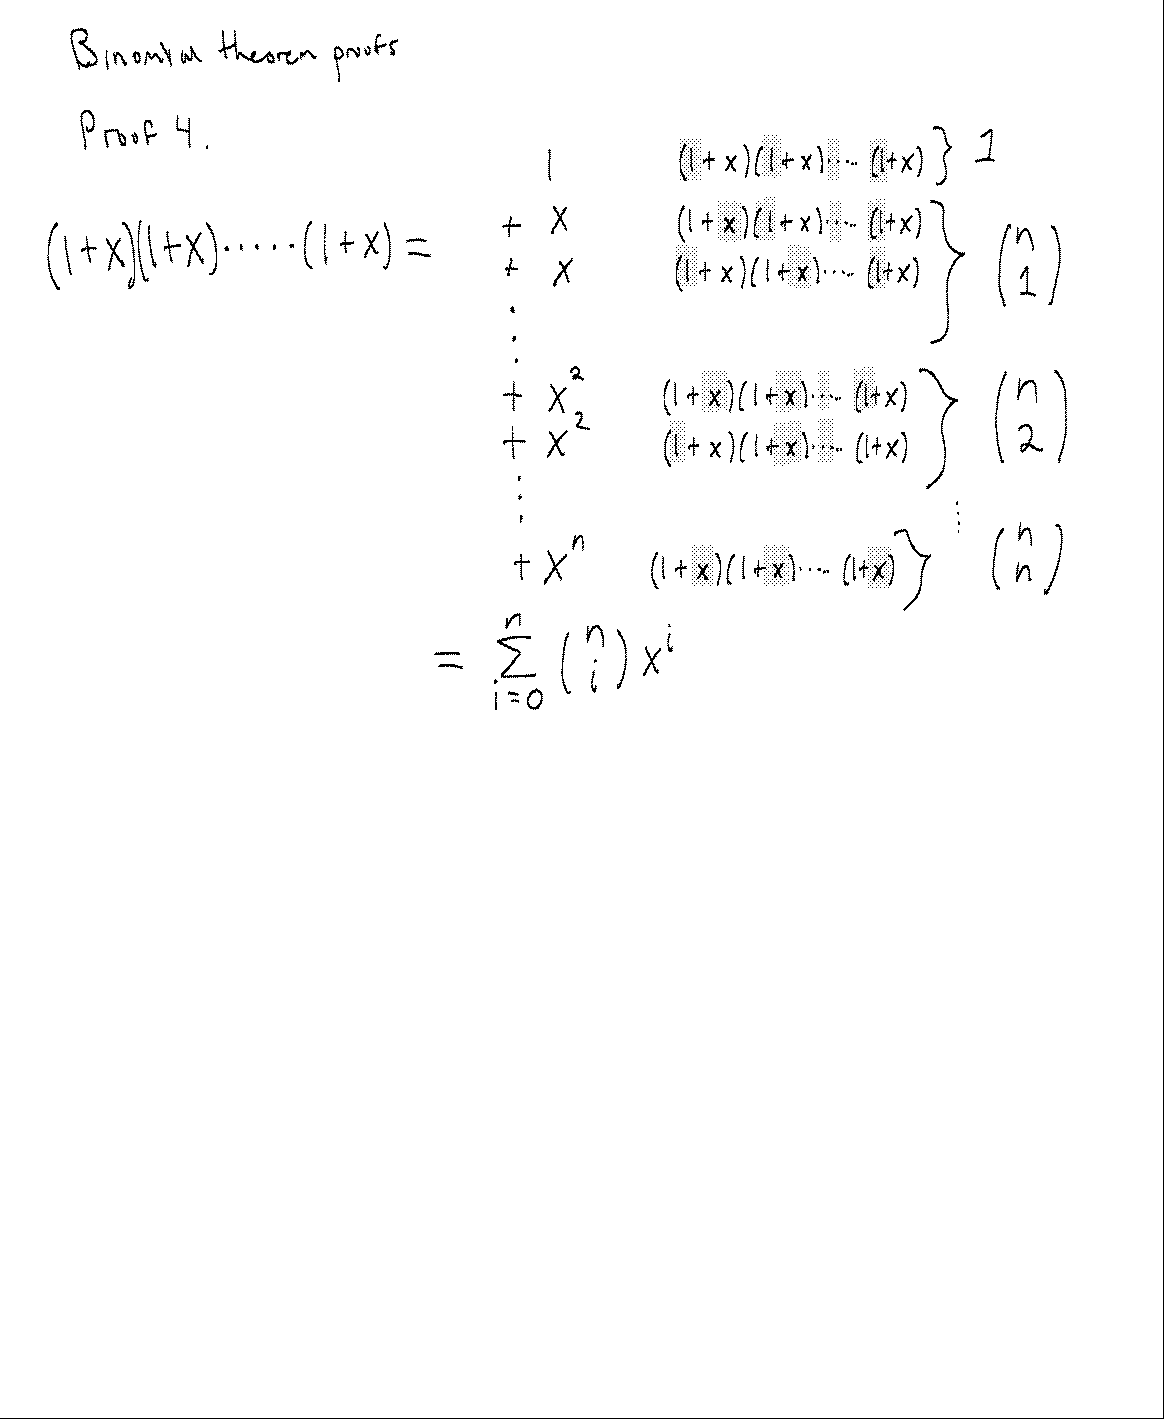 Binomial theorem proofs
Proof 4.
1 (1+x)(1+x)····(1+x) } 1
(1+x)(1+x)·····(1+x) = + x (1+x)(1+x)····(1+x)
+ x (1+x)(1+x)····(1+x) } (n 1)
⋮
+ x² (1+x)(1+x)····(1+x)
+ x² (1+x)(1+x)····(1+x) } (n 2)
⋮ ⋮
+ xⁿ (1+x)(1+x)····(1+x) } (n n)
= n∑i=0 (n i) xⁱ